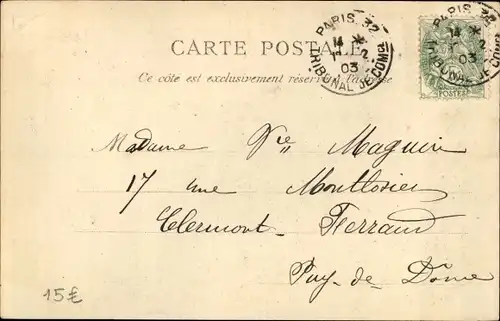 CARTE POSTALE
Ce côté est exclusivement réservé à l'adresse
PARIS. 32
14 *
1 2
03
TRIBUNAL DE COMce
PARIS. 32
14 *
1 2
03
TRIBUNAL DE COMce
5
POSTES
Madame Vve Maguin
17 rue Montlosier
Clermont-Ferrand
Puy-de-Dôme
15€